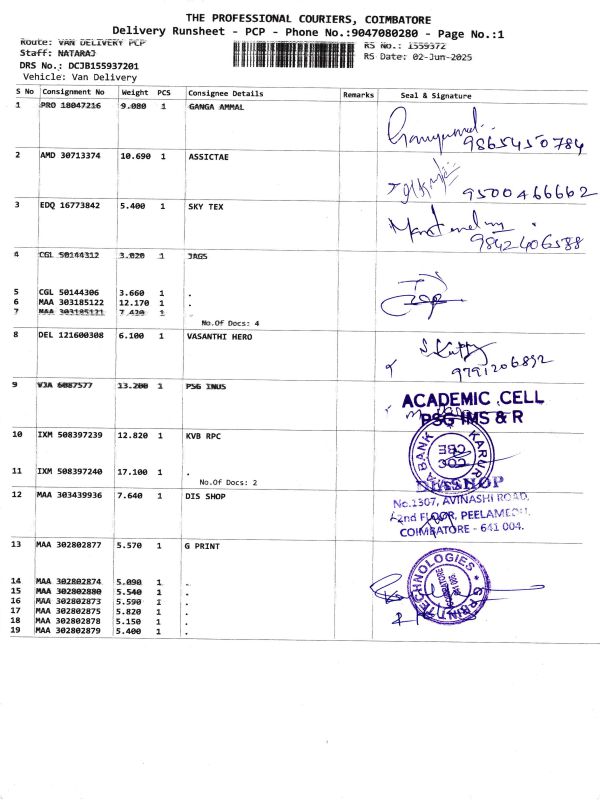 THE PROFESSIONAL COURIERS, COIMBATORE
Delivery Runsheet - PCP - Phone No.:9047080280 - Page No.:1
Route: VAN DELIVERY PCP
RS No.: 1559372
Staff: NATARAJ
RS Date: 02-Jun-2025
DRS No.: DCJB155937201
Vehicle: Van Delivery
S No Consignment No Weight PCS Consignee Details Remarks Seal & Signature
1 PRO 18047216 9.080 1 GANGA AMMAL
9865450784
2 AMD 30713374 10.690 1 ASSICTAE
9500466662
3 EDQ 16773842 5.400 1 SKY TEX
9842406588
4 CGL 50144312 3.020 1 JAGS
5 CGL 50144306 3.660 1 .
6 MAA 303185122 12.170 1 .
7 MAA 303185121 7.420 1 .
No.Of Docs: 4
8 DEL 121600308 6.100 1 VASANTHI HERO
9791206892
9 VJA 6087577 13.200 1 PSG INUS
ACADEMIC CELL
PSG IMS & R
10 IXM 508397239 12.820 1 KVB RPC
KARUR
BANK
COC
CBE
11 IXM 508397240 17.100 1 .
No.Of Docs: 2
12 MAA 303439936 7.640 1 DIS SHOP
DIS SHOP
No.1307, AVINASHI ROAD,
2nd FLOOR, PEELAMEDU,
COIMBATORE - 641 004.
13 MAA 302802877 5.570 1 G PRINT
G PRINT TECHNOLOGIES
COIMBATORE
14 MAA 302802874 5.090 1 .
15 MAA 302802880 5.540 1 .
16 MAA 302802873 5.590 1 .
17 MAA 302802875 5.820 1 .
18 MAA 302802878 5.150 1 .
19 MAA 302802879 5.400 1 .